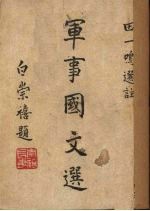 田一鳴選註
軍事國文選
白崇禧題